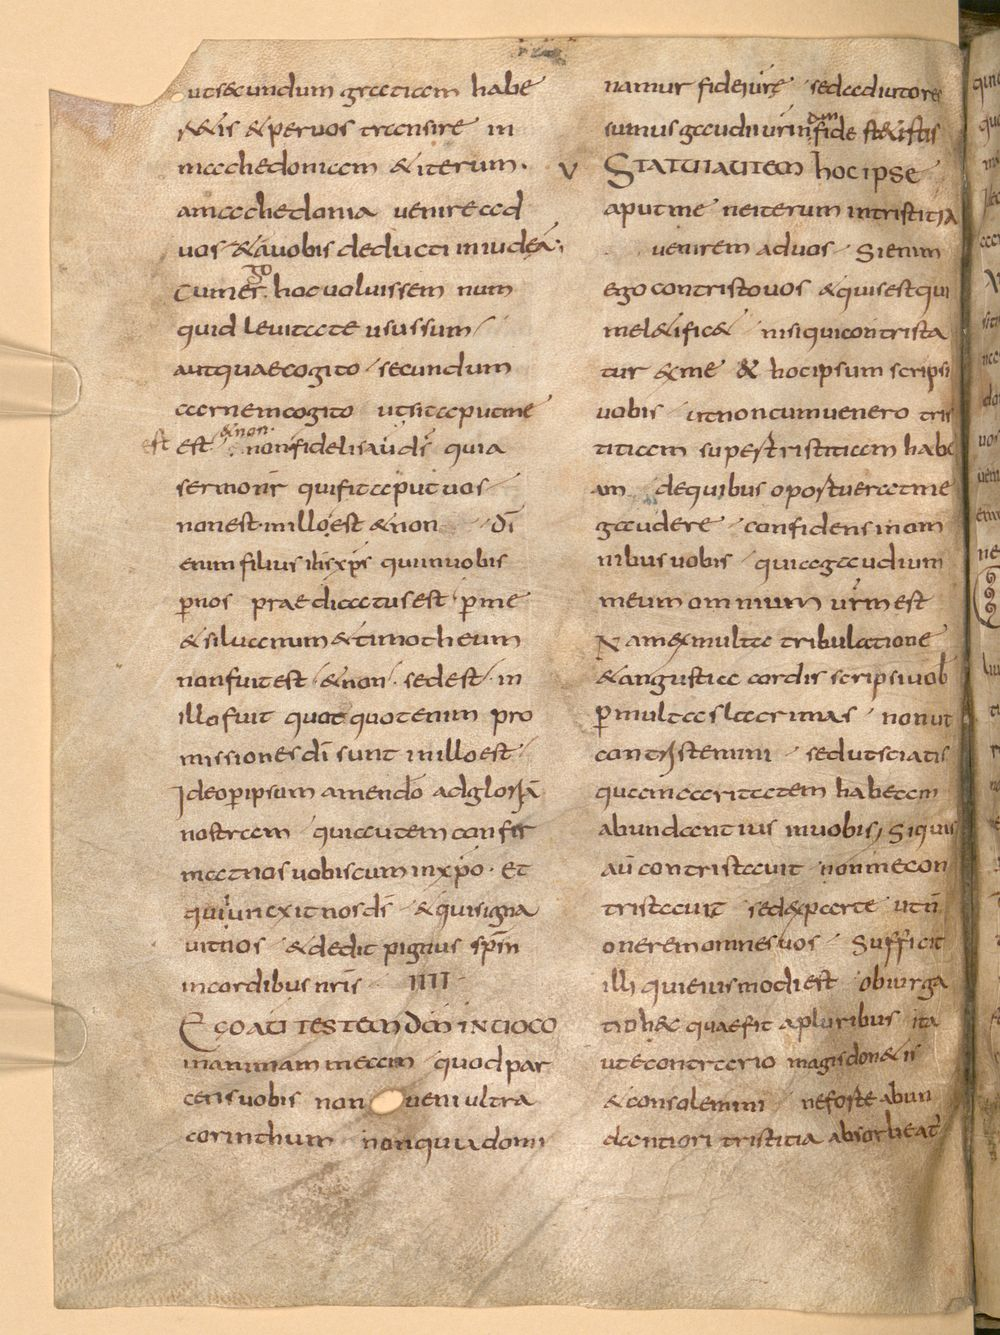 ut secundum gratiam habe
r&is & per vos transire in
machedoniam & iterum·
a machedonia venire ad
vos & a vobis deduci in iudeā·
Cum erḡo hoc voluissem num
quid levitate usus sum
aut quae cogito secundum
carnem cogito ut sit apud me
est est & non non fidelis aut ds̄ quia
sermo nr̄ qui fit aput vos
non est in illo est & non dī
enim filius ih̄s xp̄s qui in vobis
p̱ nos praedicatus est p̱ me
& siluanum & timotheum
non fuit est & non· sed est· in
illo fuit quotquot enim pro
missiones dī sunt in illo est
Ideo p̱ ipsum amen dō ad gloriā
nostram qui autem confir
mat nos vobiscum in xp̄o· Et
qui unexit nos ds̄ & qui signa
vit nos & dedit pignus sp̄m
in cordibus nr̄is IIII
EGO AUTEM TESTEM DM̄ INUOCO
in animam meam quod par
cens vobis non veni ultra
corinthum non quia domi
namur fidei ur̄e sed adiutores
sumus gaudii ur̄i in fide st&istis
V STATUI AUTEM hoc ipse
aput me ne iterum in tristitia
venirem ad vos Si enim
ego contristo vos & quis est qui
me l&ific& nisi qui contrista
tur & me & hoc ipsum scripsi
vobis ut non cum venero tris
titiam super tristitiam habe
am de quibus oportuerat me
gaudere confidens in om
nibus vobis quia gaudium
meum omnium ur̄m est
Nam ex multa tribulatione
& angustia cordis scripsi vob
p̱ multas lacrimas non ut
contristemini sed ut sciatis
quam caritatem habeam
abundantius in vobis, Si quis
aū contristavit non me con
tristavit sed ex parte ut n̄
onerem omnes vos Sufficit
illi qui eiusmodi est obiurga
tio h&c quae fit a pluribus ita
ut e contrario magis don&is
& consolemini ne forte abun
dantiori tristitia absorbeat̄